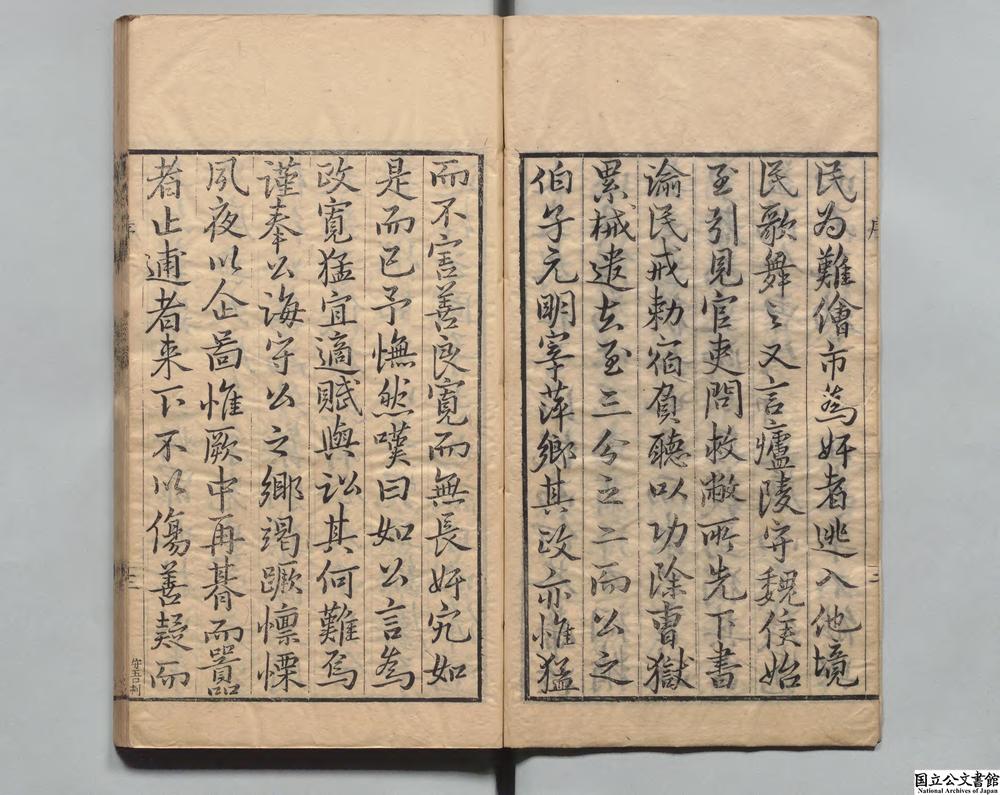 民為難繪市為奸者逃入他境
民歌舞之又言廬陵守魏侯始
至引見官吏問救敝所先下書
諭民戒勅宿負聽以功除曹獄
累械遣去至三分之二而公之
伯子元明宰萍鄉其政亦惟猛
而不害善良寬而無長奸宄如
是而已予憮然嘆曰如公言為
政寬猛宜適賦與訟其何難焉
謹奉公誨守公之鄉竭蹶懍慄
夙夜以企啚惟厥中再朞而嚚
者止逋者来下不以傷善疑而
序
二
序
三
国立公文書館
National Archives of Japan